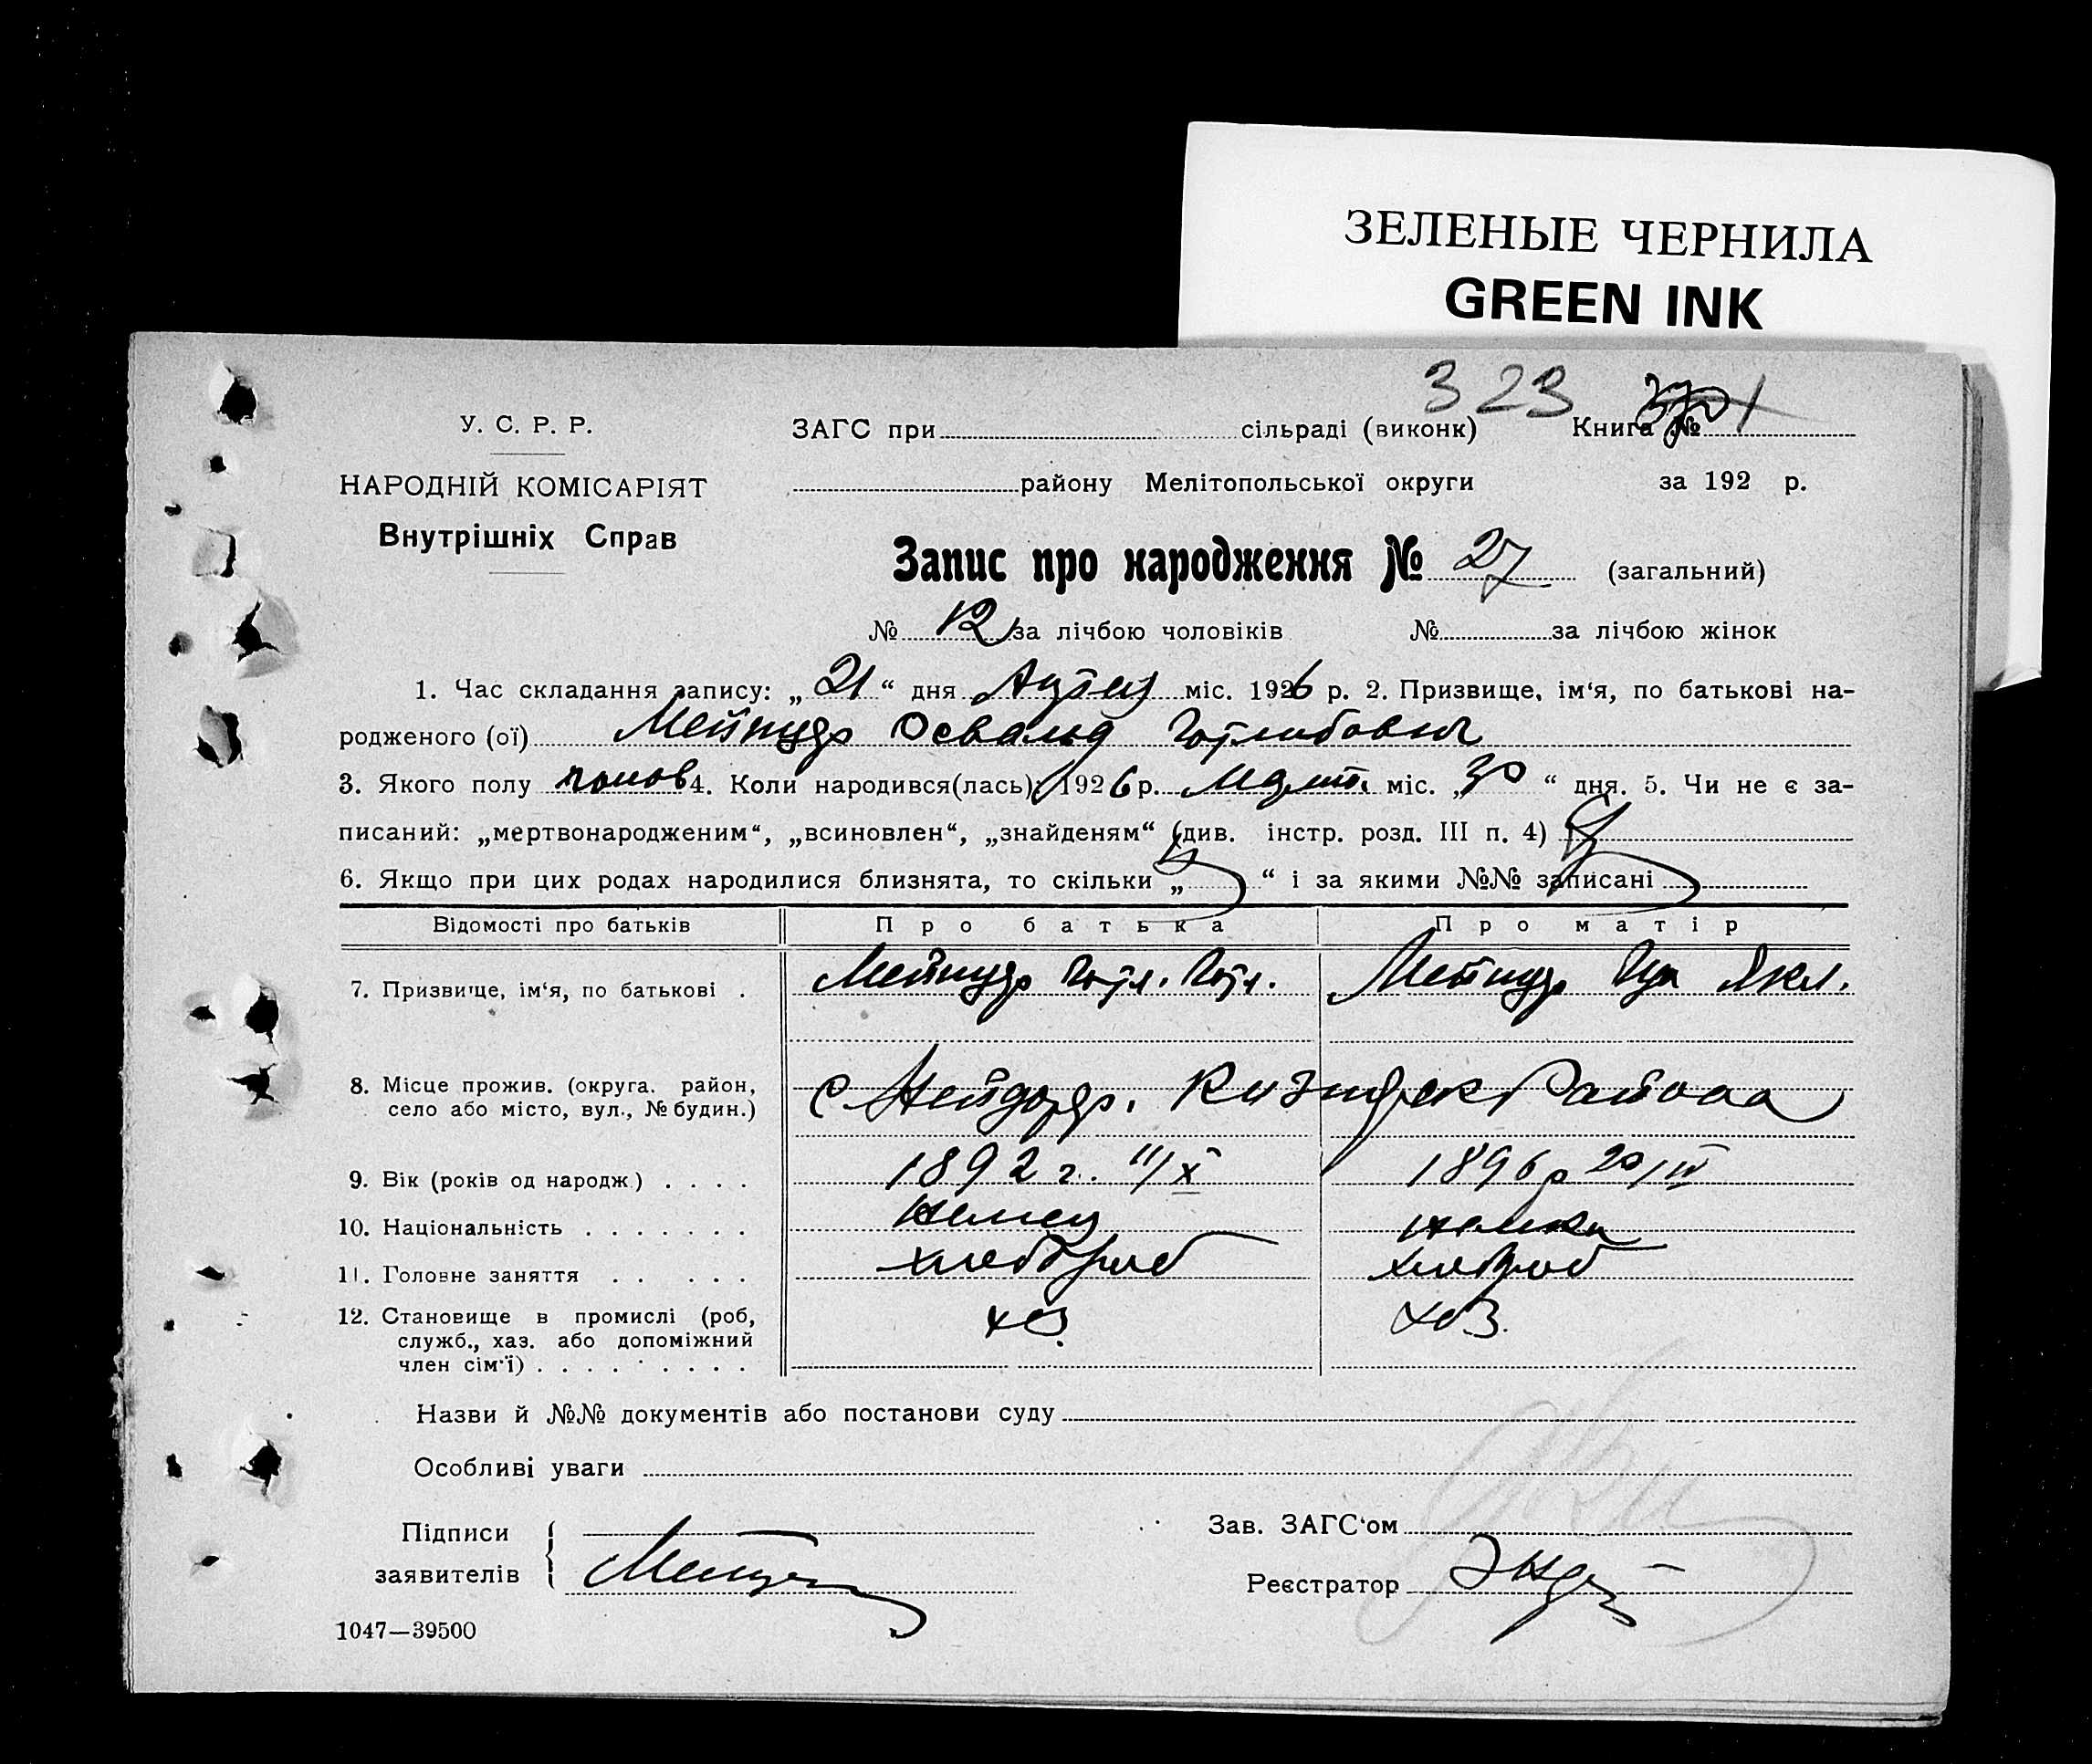 ЗЕЛЕНЫЕ ЧЕРНИЛА
GREEN INK
323
У. С. Р. Р.
ЗАГС при сільраді (виконк) Книга № 1
НАРОДНІЙ КОМІСАРІЯТ
району Мелітопольської округи за 192 р.
Внутрішніх Справ
Запис про народження № 27 (загальний)
№ 12 за лічбою чоловіків № за лічбою жінок
1. Час складання запису: „ 21 “ дня міс. 1926 р. 2. Призвище, ім‘я, по батькові на-
родженого (ої) Освальд Готлибович
3. Якого полу 4. Коли народився(лась) 1926 р. міс. „ 30 “ дня. 5. Чи не є за-
писаний: „мертвонародженим“, „всиновлен“, „знайденям“ (див. інстр. розд. III п. 4)
6. Якщо при цих родах народилися близнята, то скільки „ “ і за якими №№ записані
Відомості про батьків Про батька Про матір
7. Призвище, ім‘я, по батькові . Готл. Готл.
8. Місце прожив. (округа. район,
село або місто, вул., № будин.)
с Района
9. Вік (років од народж) . . . . 1892 г. 11/X 1896 р 20/IV
10. Національність . . . . . . . немец немка
11. Головне заняття . . . . . хлебороб хлебороб
12. Становище в промислі (роб,
служб., хаз. або допоміжний
член сім‘ї) . . . . . . . . .
хоз. хоз.
Назви й №№ документів або постанови суду
Особливі уваги
Підписи
заявителів
Зав. ЗАГС‘ом
Реєстратор
1047—39500